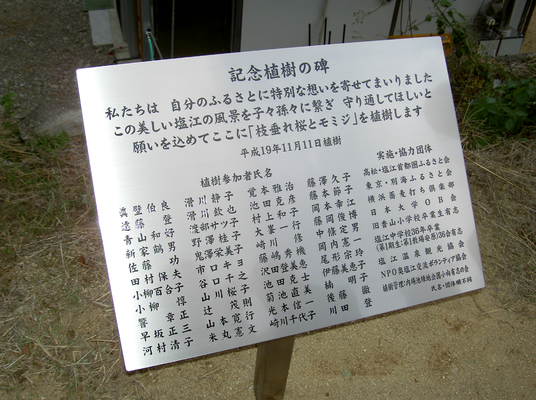 記念植樹の碑
私たちは 自分のふるさとに特別な想いを寄せてまいりました
この美しい塩江の風景を子々孫々に繋ぎ 守り通してほしいと
願いを込めてここに「枝垂れ桜とモミジ」を植樹します
平成19年11月11日植樹
植樹参加者氏名
眞壁伯良
遠藤登
青山和好
新家鶴男
佐藤功
田村保夫
小柳百合子
小柳惇
警章正
早坂正三
河村清子
滑川静子
滑川欽也
渡部サツ子
野澤桂子
鬼澤栄美子
市口キヨ
谷口千之
山川桜子
辻茂則
山本寛行
米丸憲文
覚本雅治
池田克彦
村上和子
大峯一行
崎川修
藤嶋秀機
沢田登美恵
池田克士
菊池直美
光本信一
崎川千代子
藤澤久子
藤本節子
岡本幸江
藤岡俊博
中條定男
岡内憲一
尾形宗玲
伊藤美恵子
楠明子
後藤徹
川田登
実施・協力団体
高松・塩江首都圏ふるさと会
東京・別海ふるさと会
横浜蕎麦打ち倶楽部
日本大学OB会
旧香山小学校卒業生有志
塩江中学校36年卒業
(第1期生：第1教場安原)36会有志
塩江温泉観光協会
NPO奥塩江交流ボランティア協会
植樹管理：内場池緑地公園小南有志の会
氏名・団体順不同